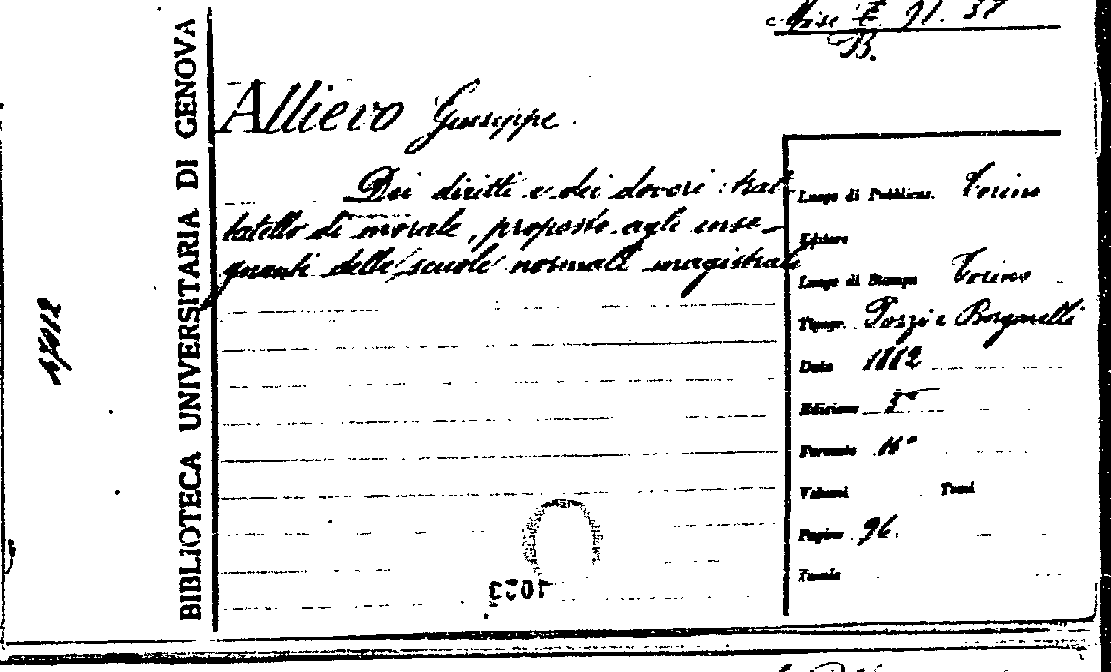 BIBLIOTECA UNIVERSITARIA DI GENOVA
Misc. E. 91. 37
B.
Allievo Giuseppe.
Dei diritti e dei doveri: trat-
tatello di morale, proposto agli inse-
gnanti delle scuole normali magistrali
Luogo di Pubblicaz. Torino
Editore
Luogo di Stampa Torino
Tipogr. Tozzi e Borgarelli
Data
Edizione
Formato 16°
Volumi Tomi
Pagine 96.
Tavole